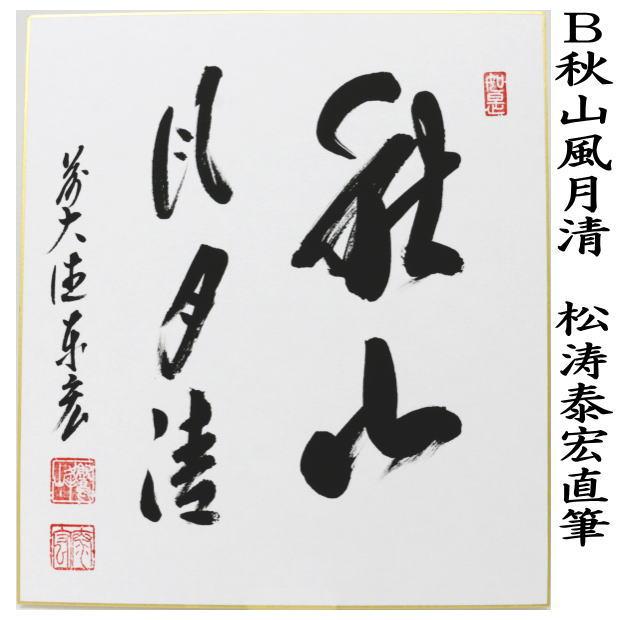 B秋山風月清 松涛泰宏直筆
秋山
風月清
前大徳泰宏